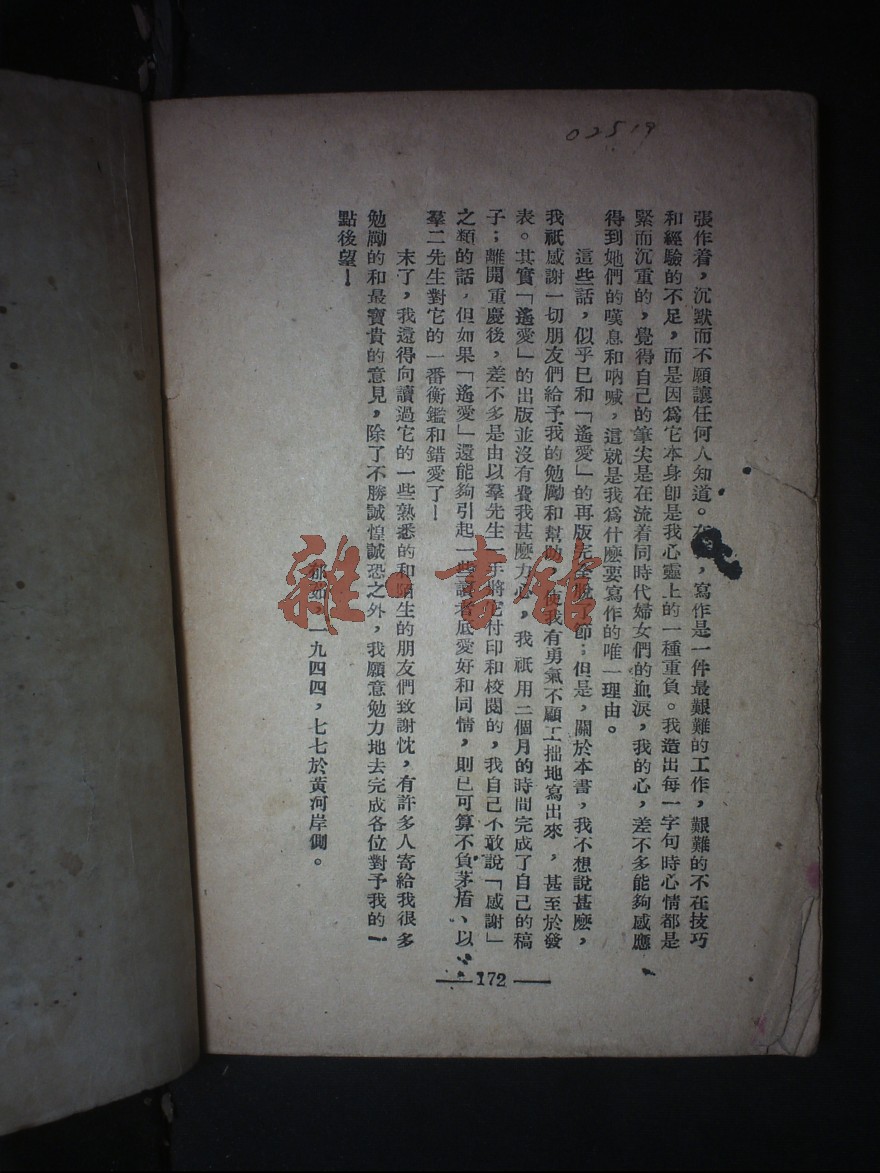 02519
張作着，沉默而不願讓任何人知道。在，寫作是一件最艱難的工作，艱難的不在技巧
和經驗的不足，而是因爲它本身卽是我心靈上的一種重負。我造出每一字句時心情都是
緊而沉重的，覺得自己的筆尖是在流着同時代婦女們的血淚，我的心，差不多能夠感應
得到她們的嘆息和吶喊，這就是我爲什麽要寫作的唯一理由。
這些話，似乎已和「遙愛」的再版完全脫了節；但是，關於本書，我不想說甚麽，
我祇感謝一切朋友們給予我的勉勵和幫助，使我有勇氣不顧工拙地寫出來，甚至於發
表。其實「遙愛」的出版並沒有費我甚麽力心，我祇用二個月的時間完成了自己的稿
子；離開重慶後，差不多是由以羣先生一手將它付印和校閱的，我自己不敢說「感謝」
之類的話，但如果「遙愛」還能夠引起一些讀者底愛好和同情，則已可算不負茅盾、以
羣二先生對它的一番衡鑑和錯愛了！
末了，我還得向讀過它的一些熟悉的和陌生的朋友們致謝忱，有許多人寄給我很多
勉勵的和最寶貴的意見，除了不勝誠惶誠恐之外，我願意勉力地去完成各位對予我的一
點後望！
郁茹，一九四四，七七於黃河岸側。
172
雜·書館